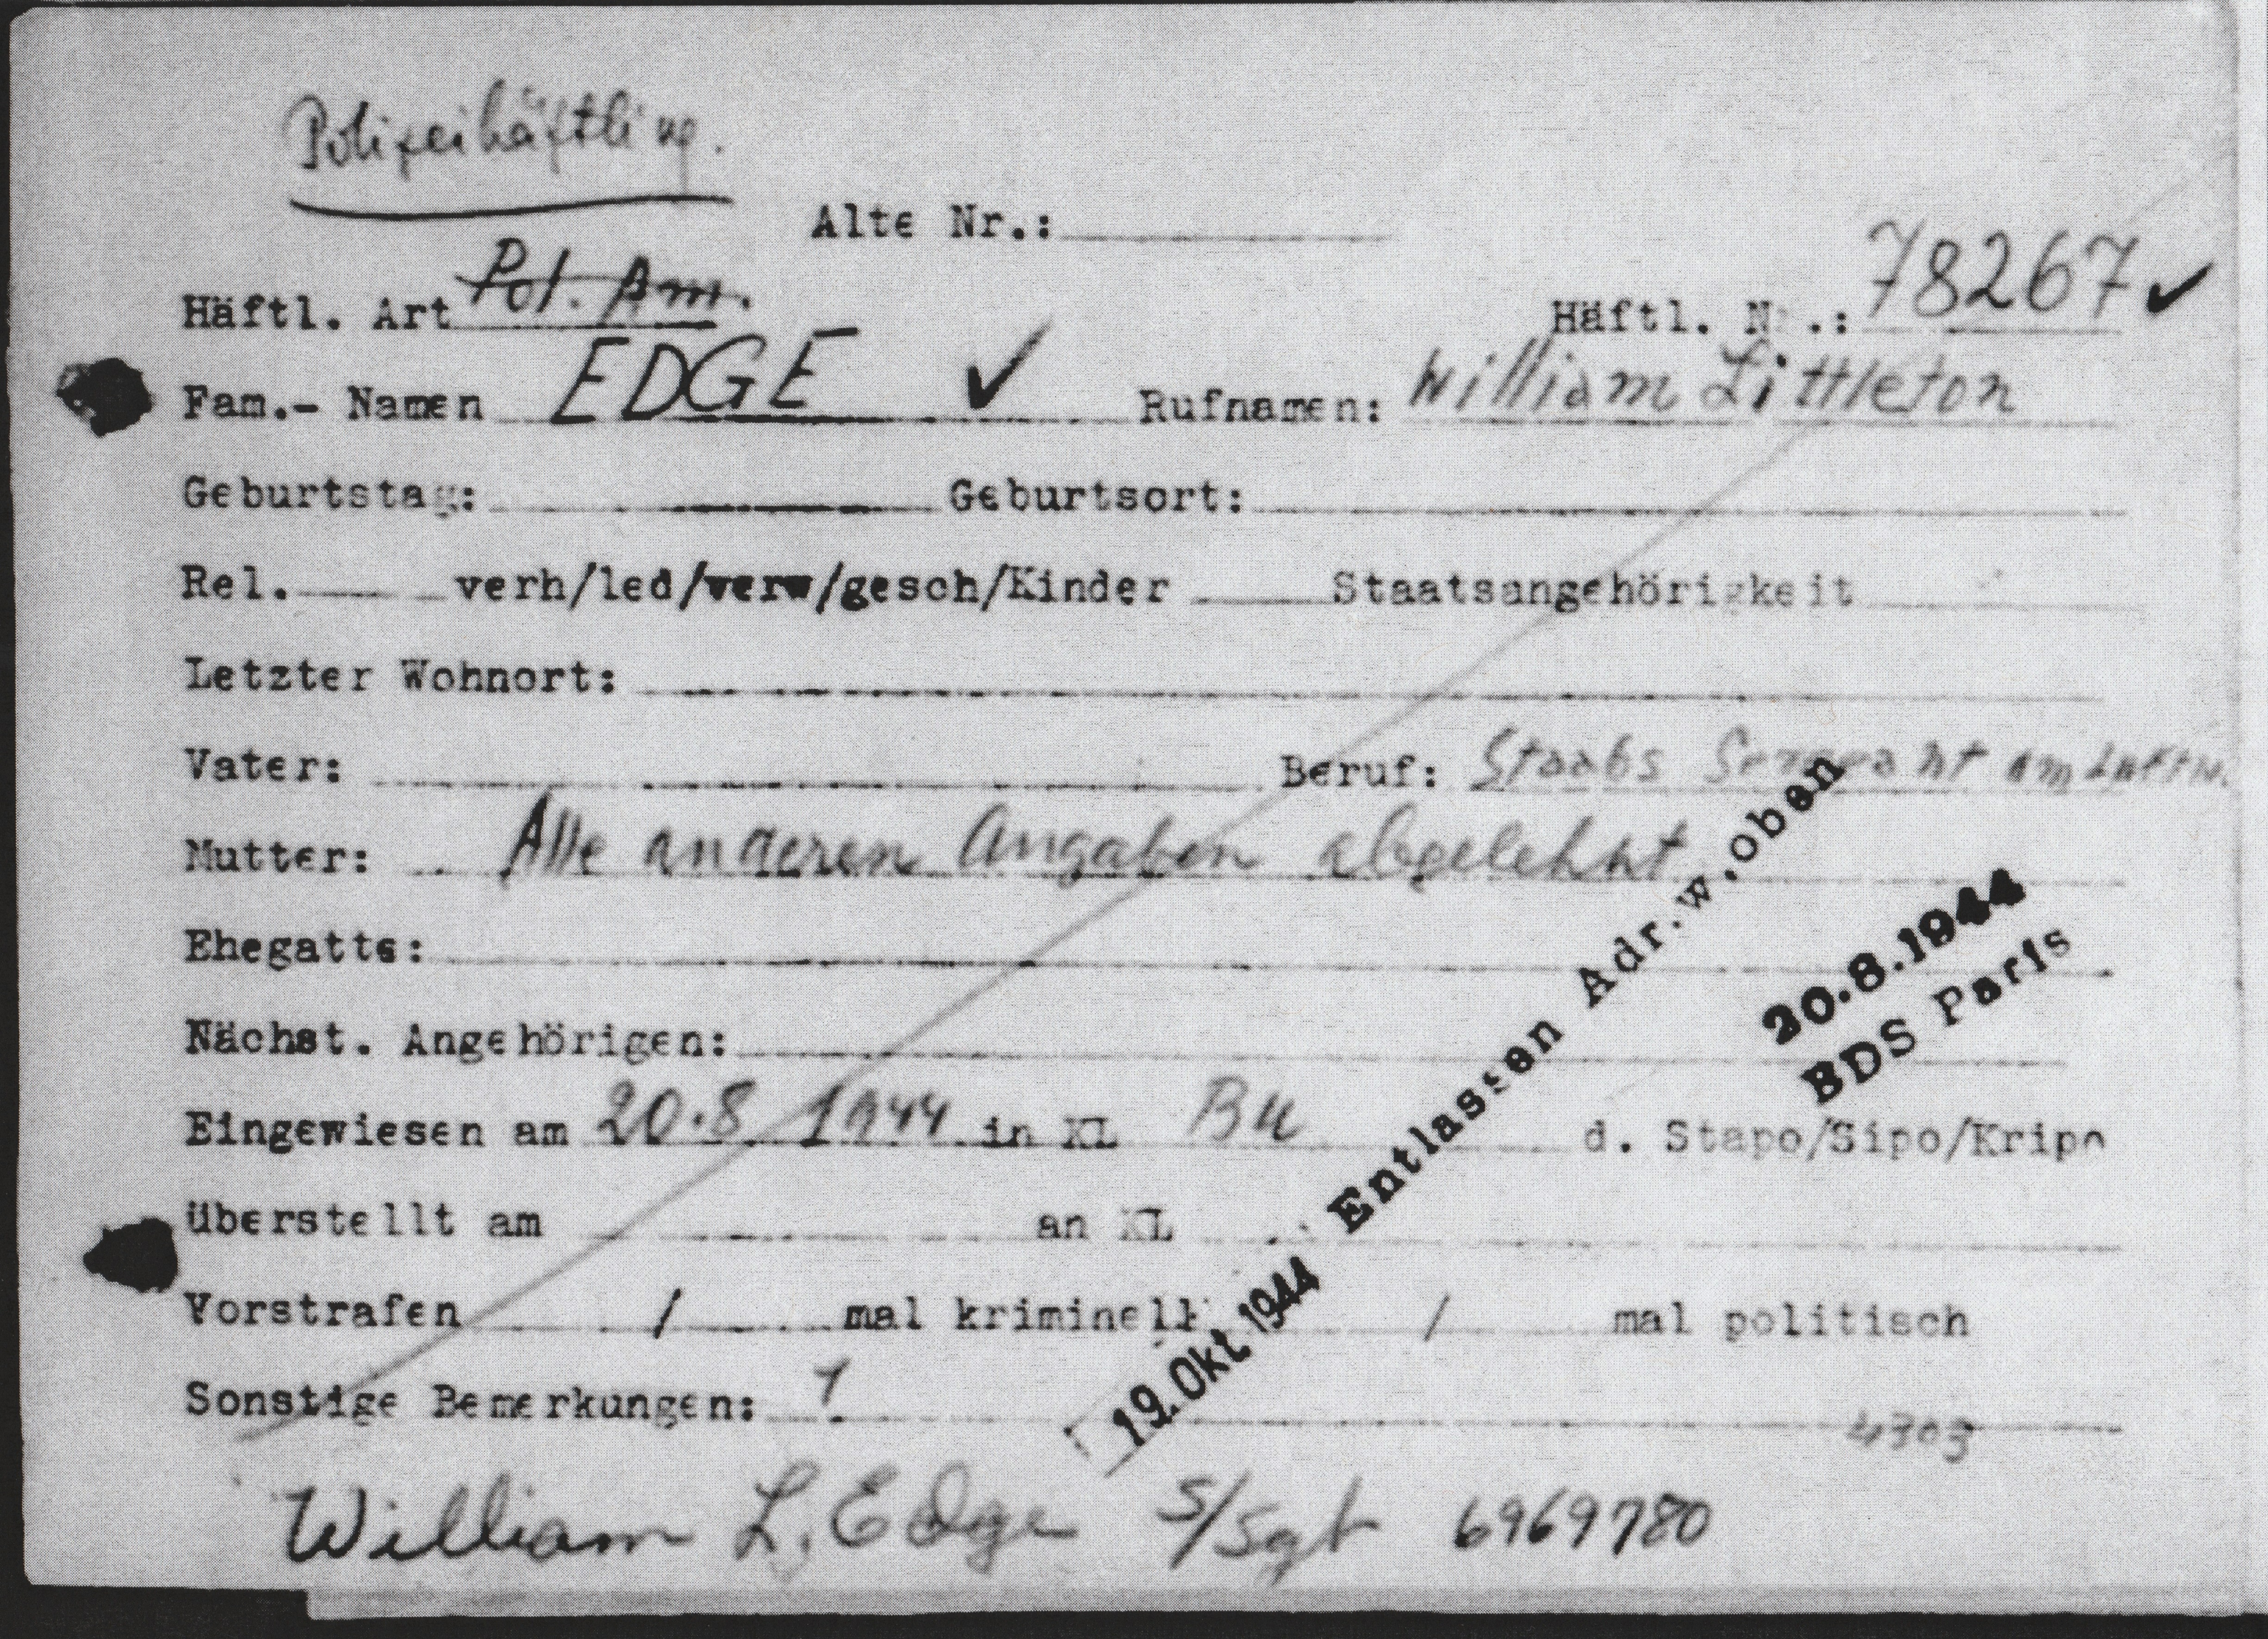 Polizeihäftling.
Alte Nr.:
Häftl. Art Pol. Am. Häftl. Nr.: 78267 ✓
Fam.- Namen EDGE ✓ Rufnamen: William Littleton
Geburtstag: Geburtsort:
Rel. verh/led/verw/gesch/Kinder Staatsangehörigkeit
Letzter Wohnort:
Vater: Beruf: Staabs Sergeant am Luftw.
Mutter: Alle anderen Angaben abgelehnt
Ehegatte:
Nächst. Angehörigen:
20.8.1944
BDS Paris
Eingewiesen am 20.8 1944 in KL Bu d. Stapo/Sipo/Kripo
überstellt am an KL
19. Okt 1944 Entlassen Adr.w.oben
Vorstrafen / mal kriminell / mal politisch
Sonstige Bemerkungen:
4303
William L. Edge S/Sgt 6969780